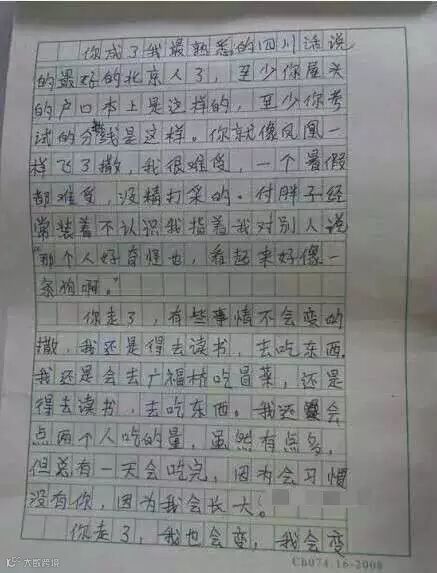 你成了我最熟悉的四川话说
的最好的北京人了，至少你屋头
的户口本上是这样的，至少你考
试的分数线是这样。你就像凤凰一
样飞了撒，我很难受，一个暑假
都难受，没精打采的。付胖子经
常装着不认识我指着我对别人说
“那个人好奇怪也，看起来好像一
条狗啊。”
你走了，有些事情不会变的
撒，我还是得去读书，去吃东西，
我还是会去广福桥吃冒菜，还是
得去读书，去吃东西。我还会
点两个人吃的量，虽然有点多，
但总有一天会吃完，因为会习惯
没有你，因为我会长大。
你走了，我也会变，我会变
Ch074.16-2008
大数跨境